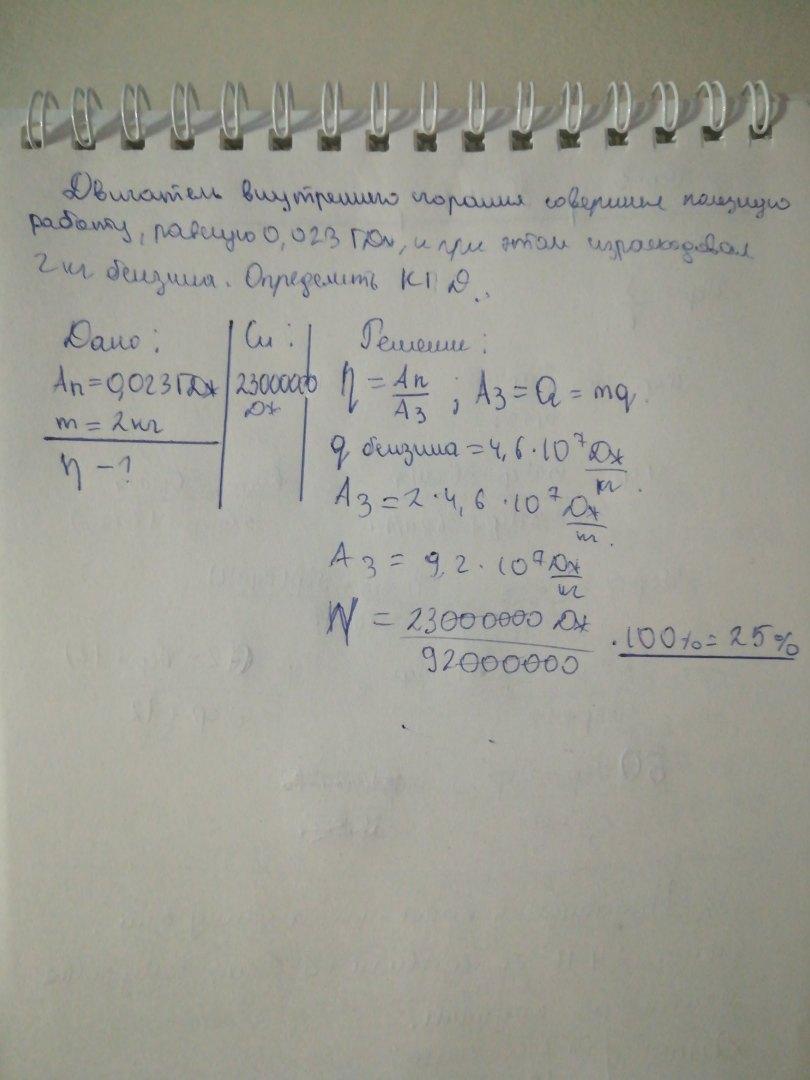 Двигатель внутреннего сгорания совершил полезную
работу, равную 0,023 ГДж, и при этом израсходовал
2 кг бензина. Определить КПД.
Дано: Си: Решение:
Aп = 0,023 ГДж 23000000 Дж η = Aп/Aз ; Aз = Q = mq.
m = 2 кг
q бензина = 4,6 · 10⁷ Дж/кг.
η - ?
Aз = 2 · 4,6 · 10⁷ Дж/кг.
Aз = 9,2 · 10⁷ Дж/кг
N = 23000000 Дж / 92000000 · 100% = 25%